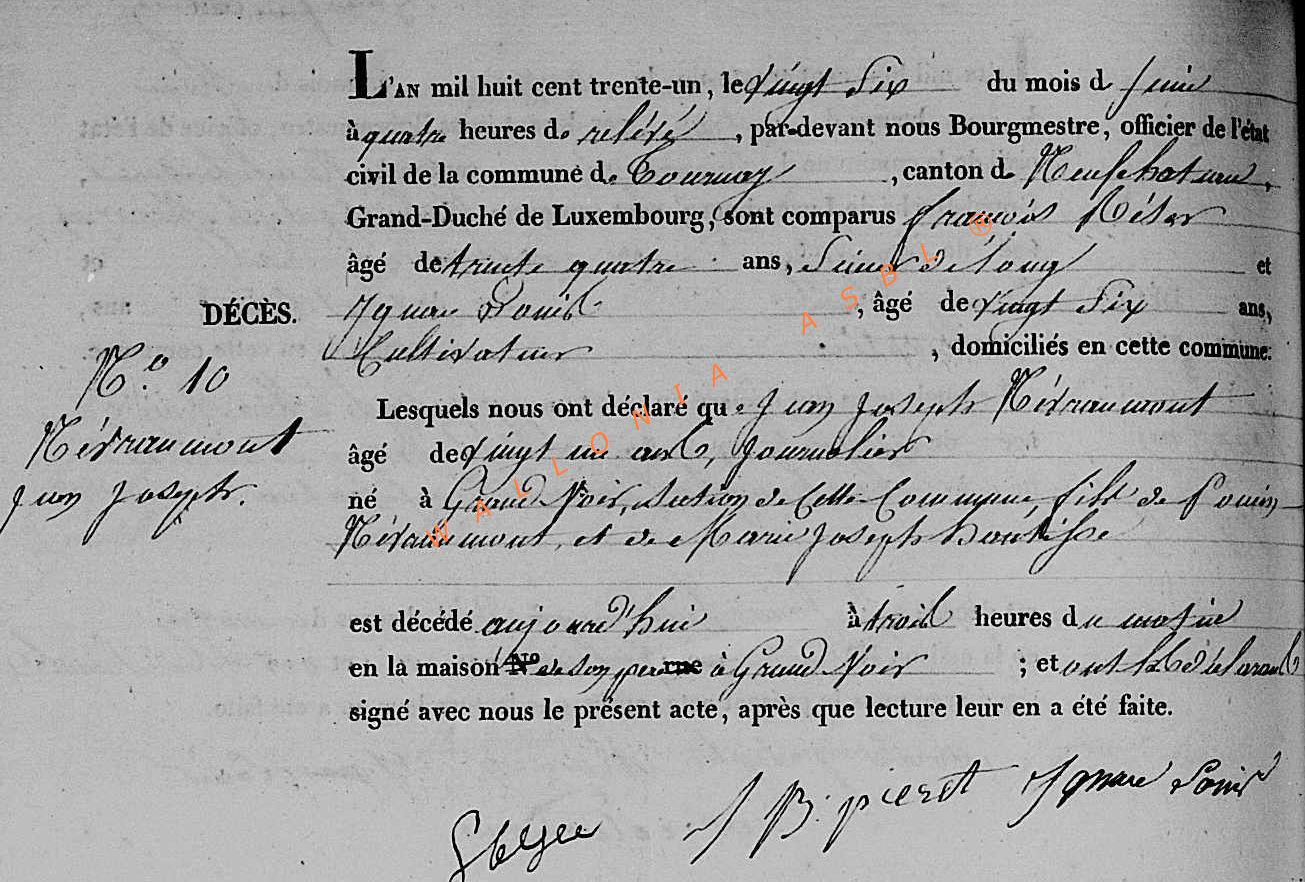 L'AN mil huit cent trente-un, le vingt six du mois de juin
à quatre heures de relévé, par-devant nous Bourgmestre, officier de l'état
civil de la commune de Tournay, canton de Neufchateau,
Grand-Duché de Luxembourg, sont comparus françois
âgé de trente quatre ans, Scieur de long et
Ignace Louis, âgé de vingt Six ans,
DÉCÈS.
Cultivateur, domiciliés en cette commune:
N.º 10
Lesquels nous ont déclaré que Jean Joseph Névraumont
Névraumont
âgé de vingt un ans, journalier
Jean Joseph.
né à Grand Voir, Section de Cette Commune, fils de Louis
Névraumont, et de Marie Joseph
est décédé aujourd'hui à trois heures du matin
en la maison N.º de son père rue à Grand Voir ; et ont les déclarans
signé avec nous le présent acte, après que lecture leur en a été faite.
J B. pieret Ignace Louis
WALLONIA ASBL ®